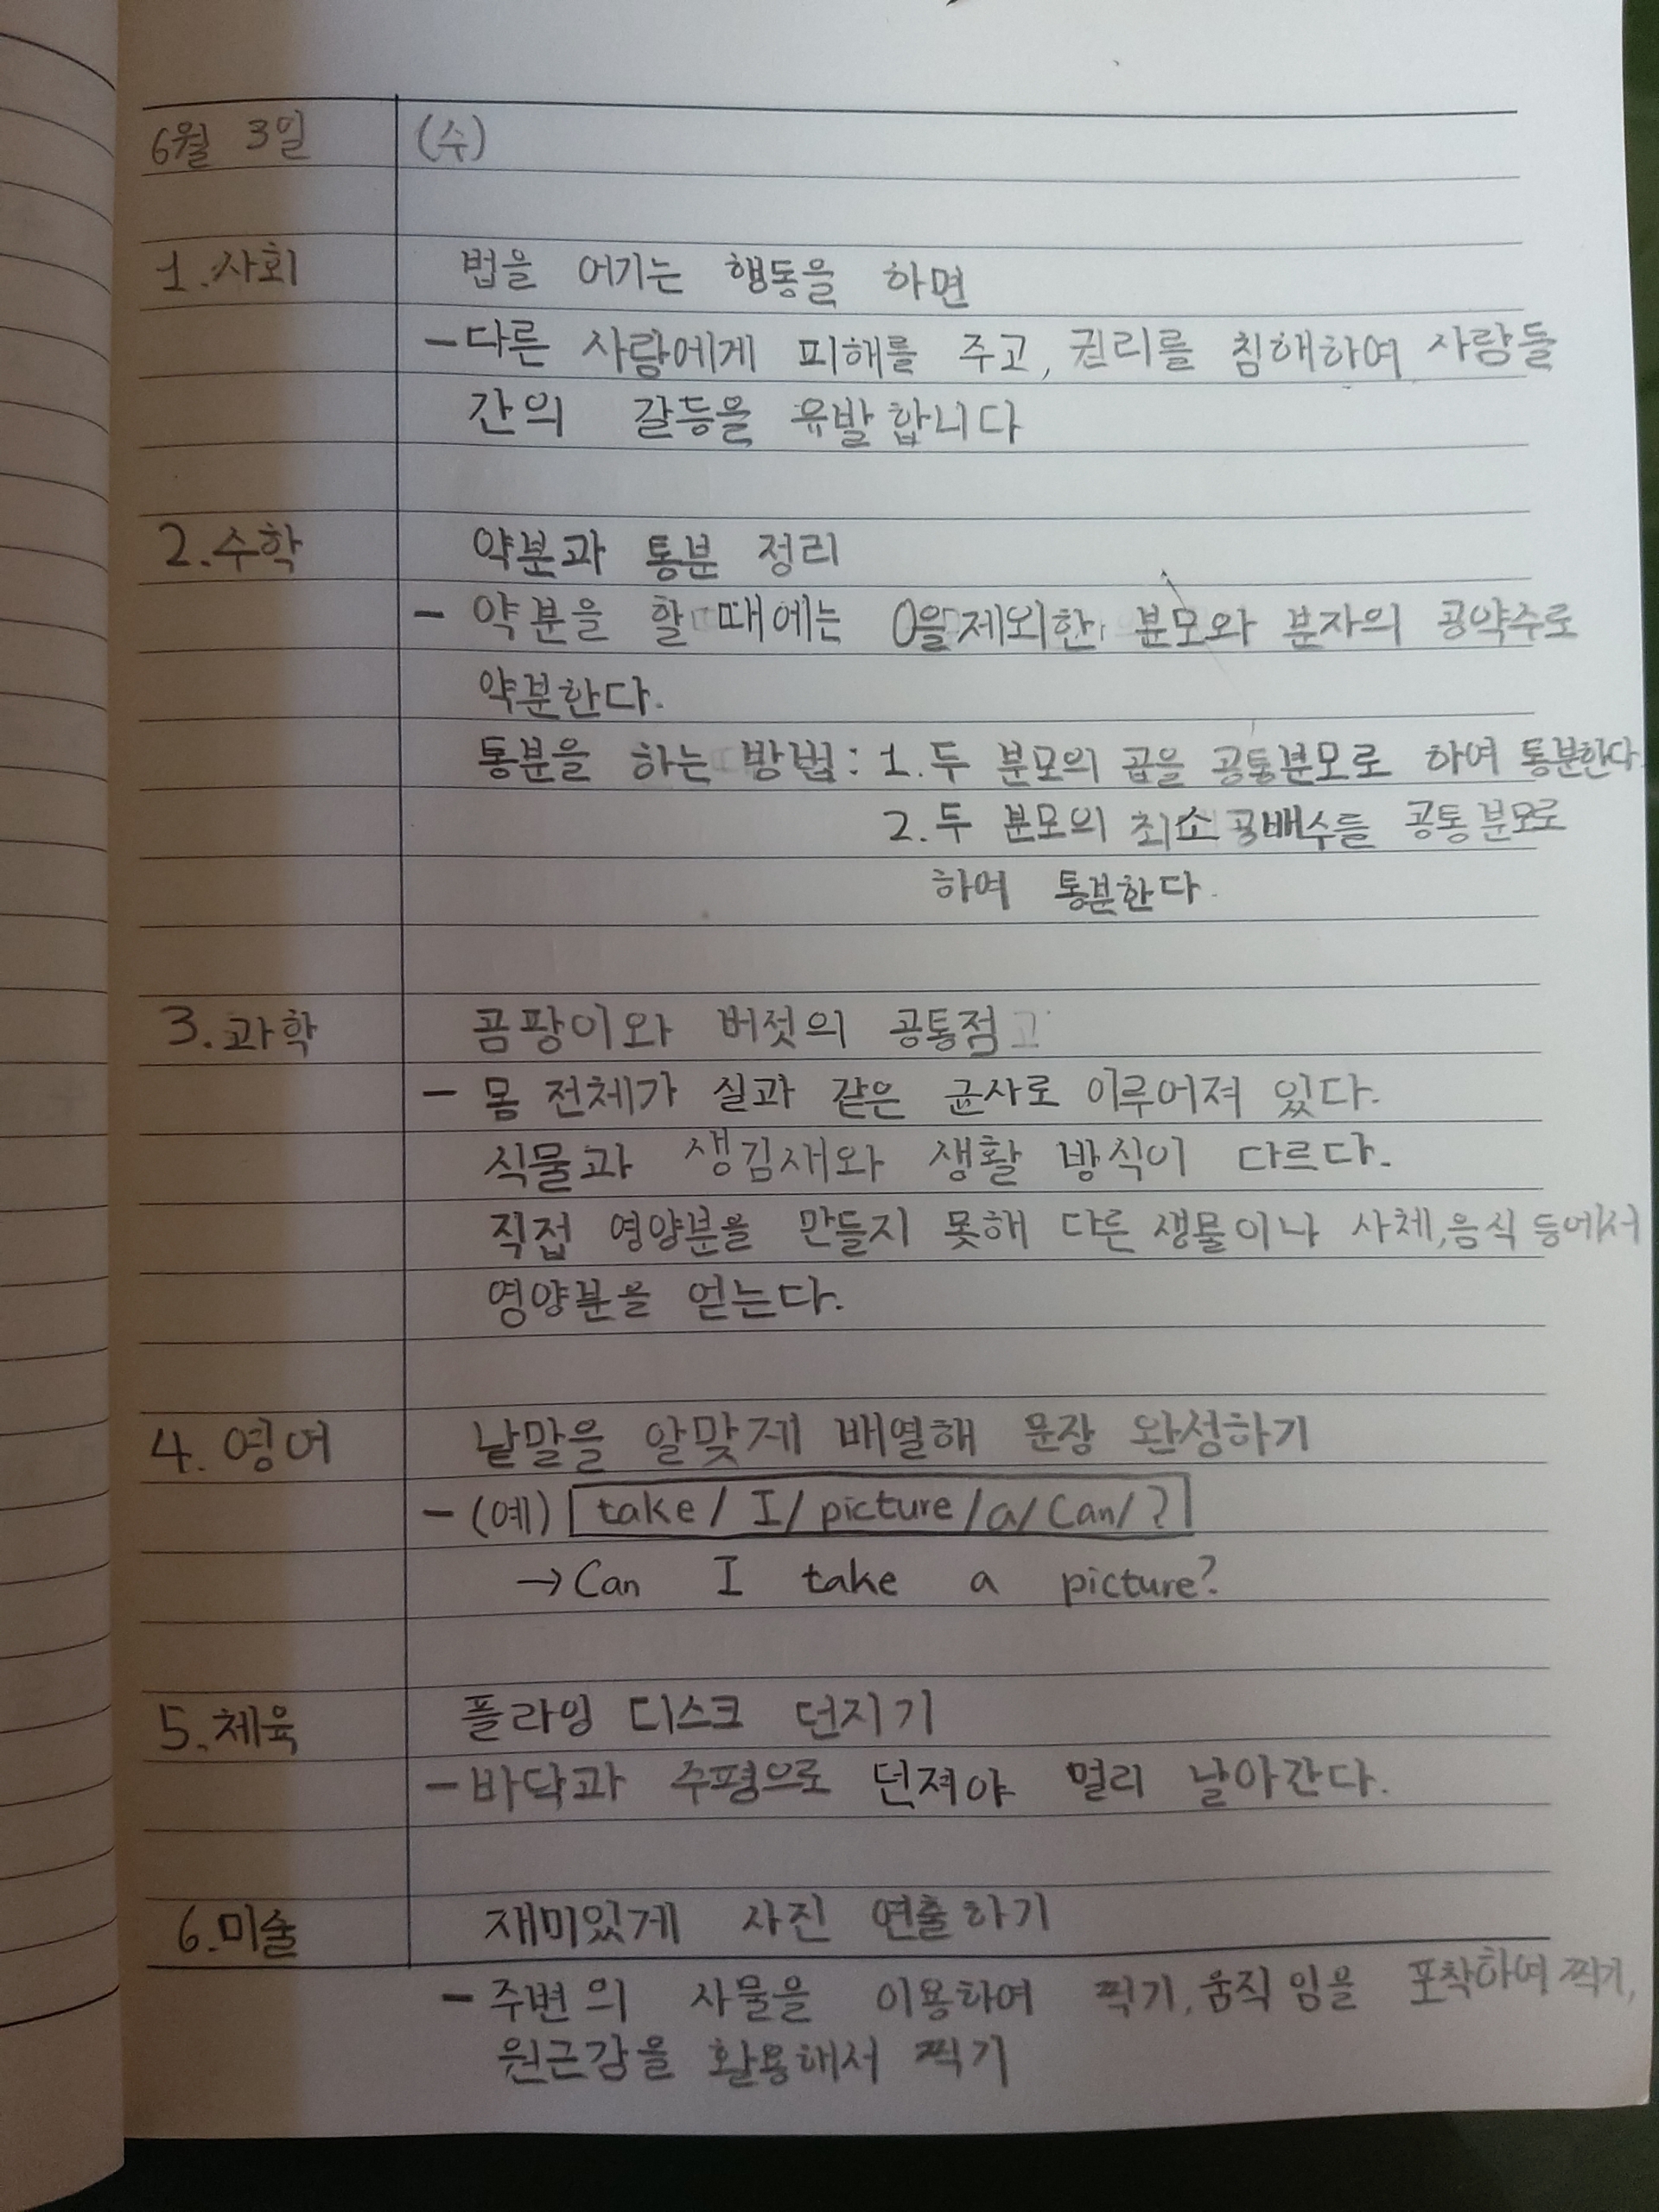 6월 3일 (수)
1. 사회 법을 어기는 행동을 하면
- 다른 사람에게 피해를 주고, 권리를 침해하여 사람들
간의 갈등을 유발합니다
2. 수학 약분과 통분 정리
- 약분을 할 때에는 0을 제외한 분모와 분자의 공약수로
약분한다.
통분을 하는 방법: 1. 두 분모의 곱을 공통분모로 하여 통분한다.
2. 두 분모의 최소공배수를 공통분모로
하여 통분한다.
3. 과학 곰팡이와 버섯의 공통점
- 몸 전체가 실과 같은 균사로 이루어져 있다.
식물과 생김새와 생활 방식이 다르다.
직접 영양분을 만들지 못해 다른 생물이나 사체, 음식 등에서
영양분을 얻는다.
4. 영어 낱말을 알맞게 배열해 문장 완성하기
- (예) take / I / picture / a / Can / ?
→ Can I take a picture?
5. 체육 플라잉 디스크 던지기
- 바닥과 수평으로 던져야 멀리 날아간다.
6. 미술 재미있게 사진 연출하기
- 주변의 사물을 이용하여 찍기, 움직임을 포착하여 찍기,
원근감을 활용해서 찍기